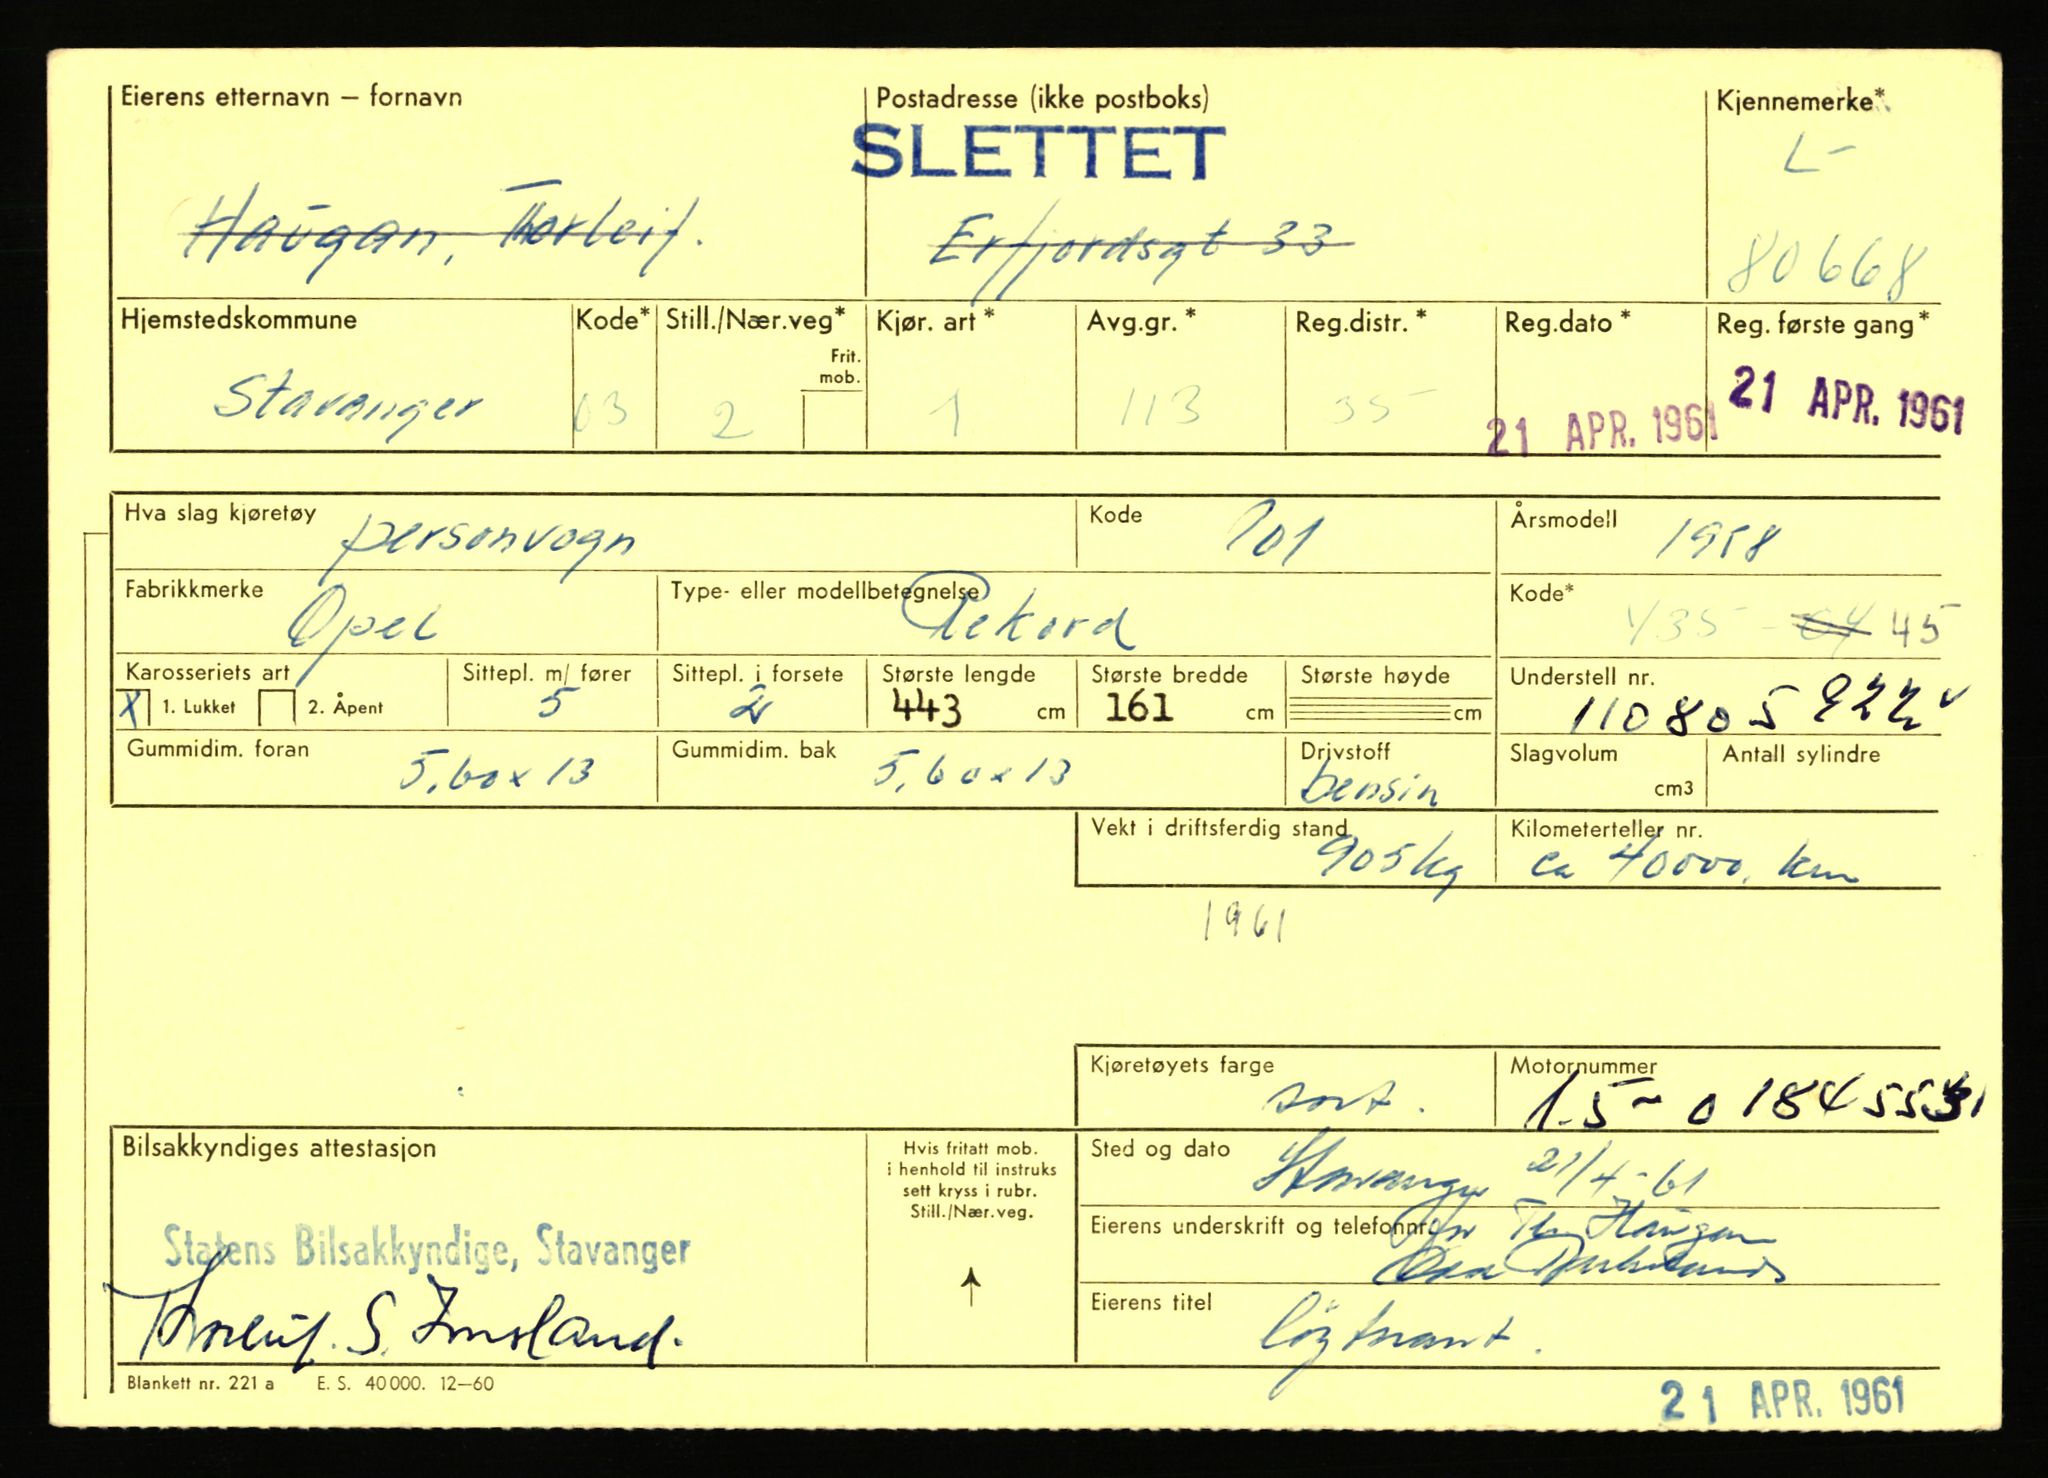 Eierens etternavn – fornavn Postadresse (ikke postboks) Kjennemerke*
SLETTET
L-
Haugan, Thorleif. Erfjordsgt 33 80668
Hjemstedskommune Kode* Still./Nær.veg* Kjør. art * Avg.gr. * Reg.distr. * Reg.dato * Reg. første gang*
Frit. mob.
Stavanger 03 2 1 113 35 21 APR. 1961 21 APR. 1961
Hva slag kjøretøy personvogn Kode 101 Årsmodell 1958
Fabrikkmerke Opel Type- eller modellbetegnelse Rekord Kode* 435 - 04 45
Karosseriets art Sittepl. m/ fører Sittepl. i forsete Største lengde Største bredde Største høyde Understell nr.
X 1. Lukket 2. Åpent 5 2 443 cm 161 cm cm 110805
Gummidim. foran 5,60x13 Gummidim. bak 5,60x13 Drivstoff bensin Slagvolum cm3 Antall sylindre
Vekt i driftsferdig stand 905 kg Kilometerteller nr. ca 40000. km
1961
Kjøretøyets farge sort. Motornummer 1.5-
Bilsakkyndiges attestasjon
Hvis fritatt mob.
i henhold til instruks
sett kryss i rubr.
Still./Nær.veg.
Sted og dato Stavanger 21/4-61
Eierens underskrift og telefonnr. Haugan
Statens Bilsakkyndige, Stavanger
Eierens titel løytnant.
Thorleif. S. Imsland.
Blankett nr. 221 a E. S. 40000. 12–60
21 APR. 1961